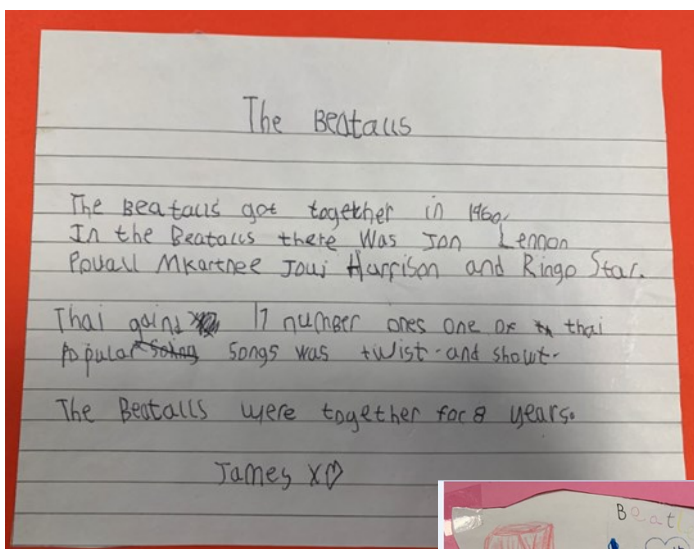 The Beatalls
The Beatalls got together in 1960.
In the Beatalls there was Jon Lennon
Povall Mkartnee Joui Harrison and Ringo Star.
Thai gaind 17 number ones one of thai
popular songs was twist and showt.
The Beatalls were together for 8 years.
James x♡
Beatl